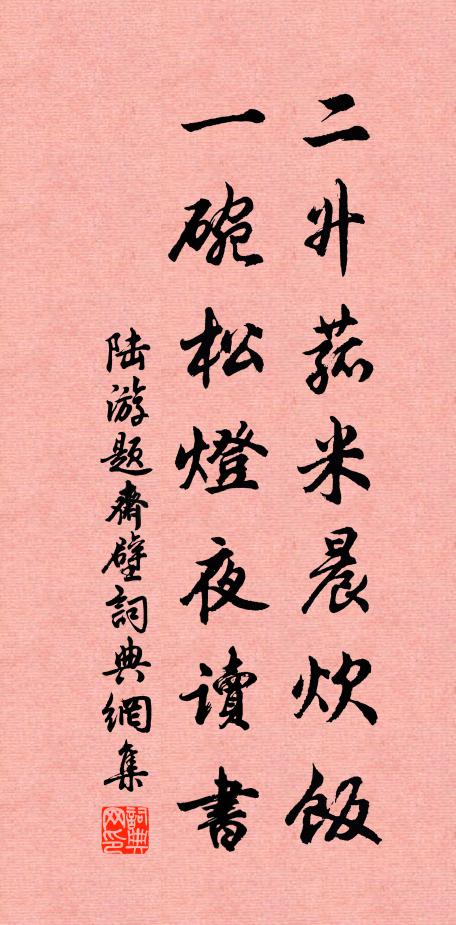 二升菰米晨炊飯
一碗松燈夜讀書
陸游題齋壁詞典網集
詞典网印